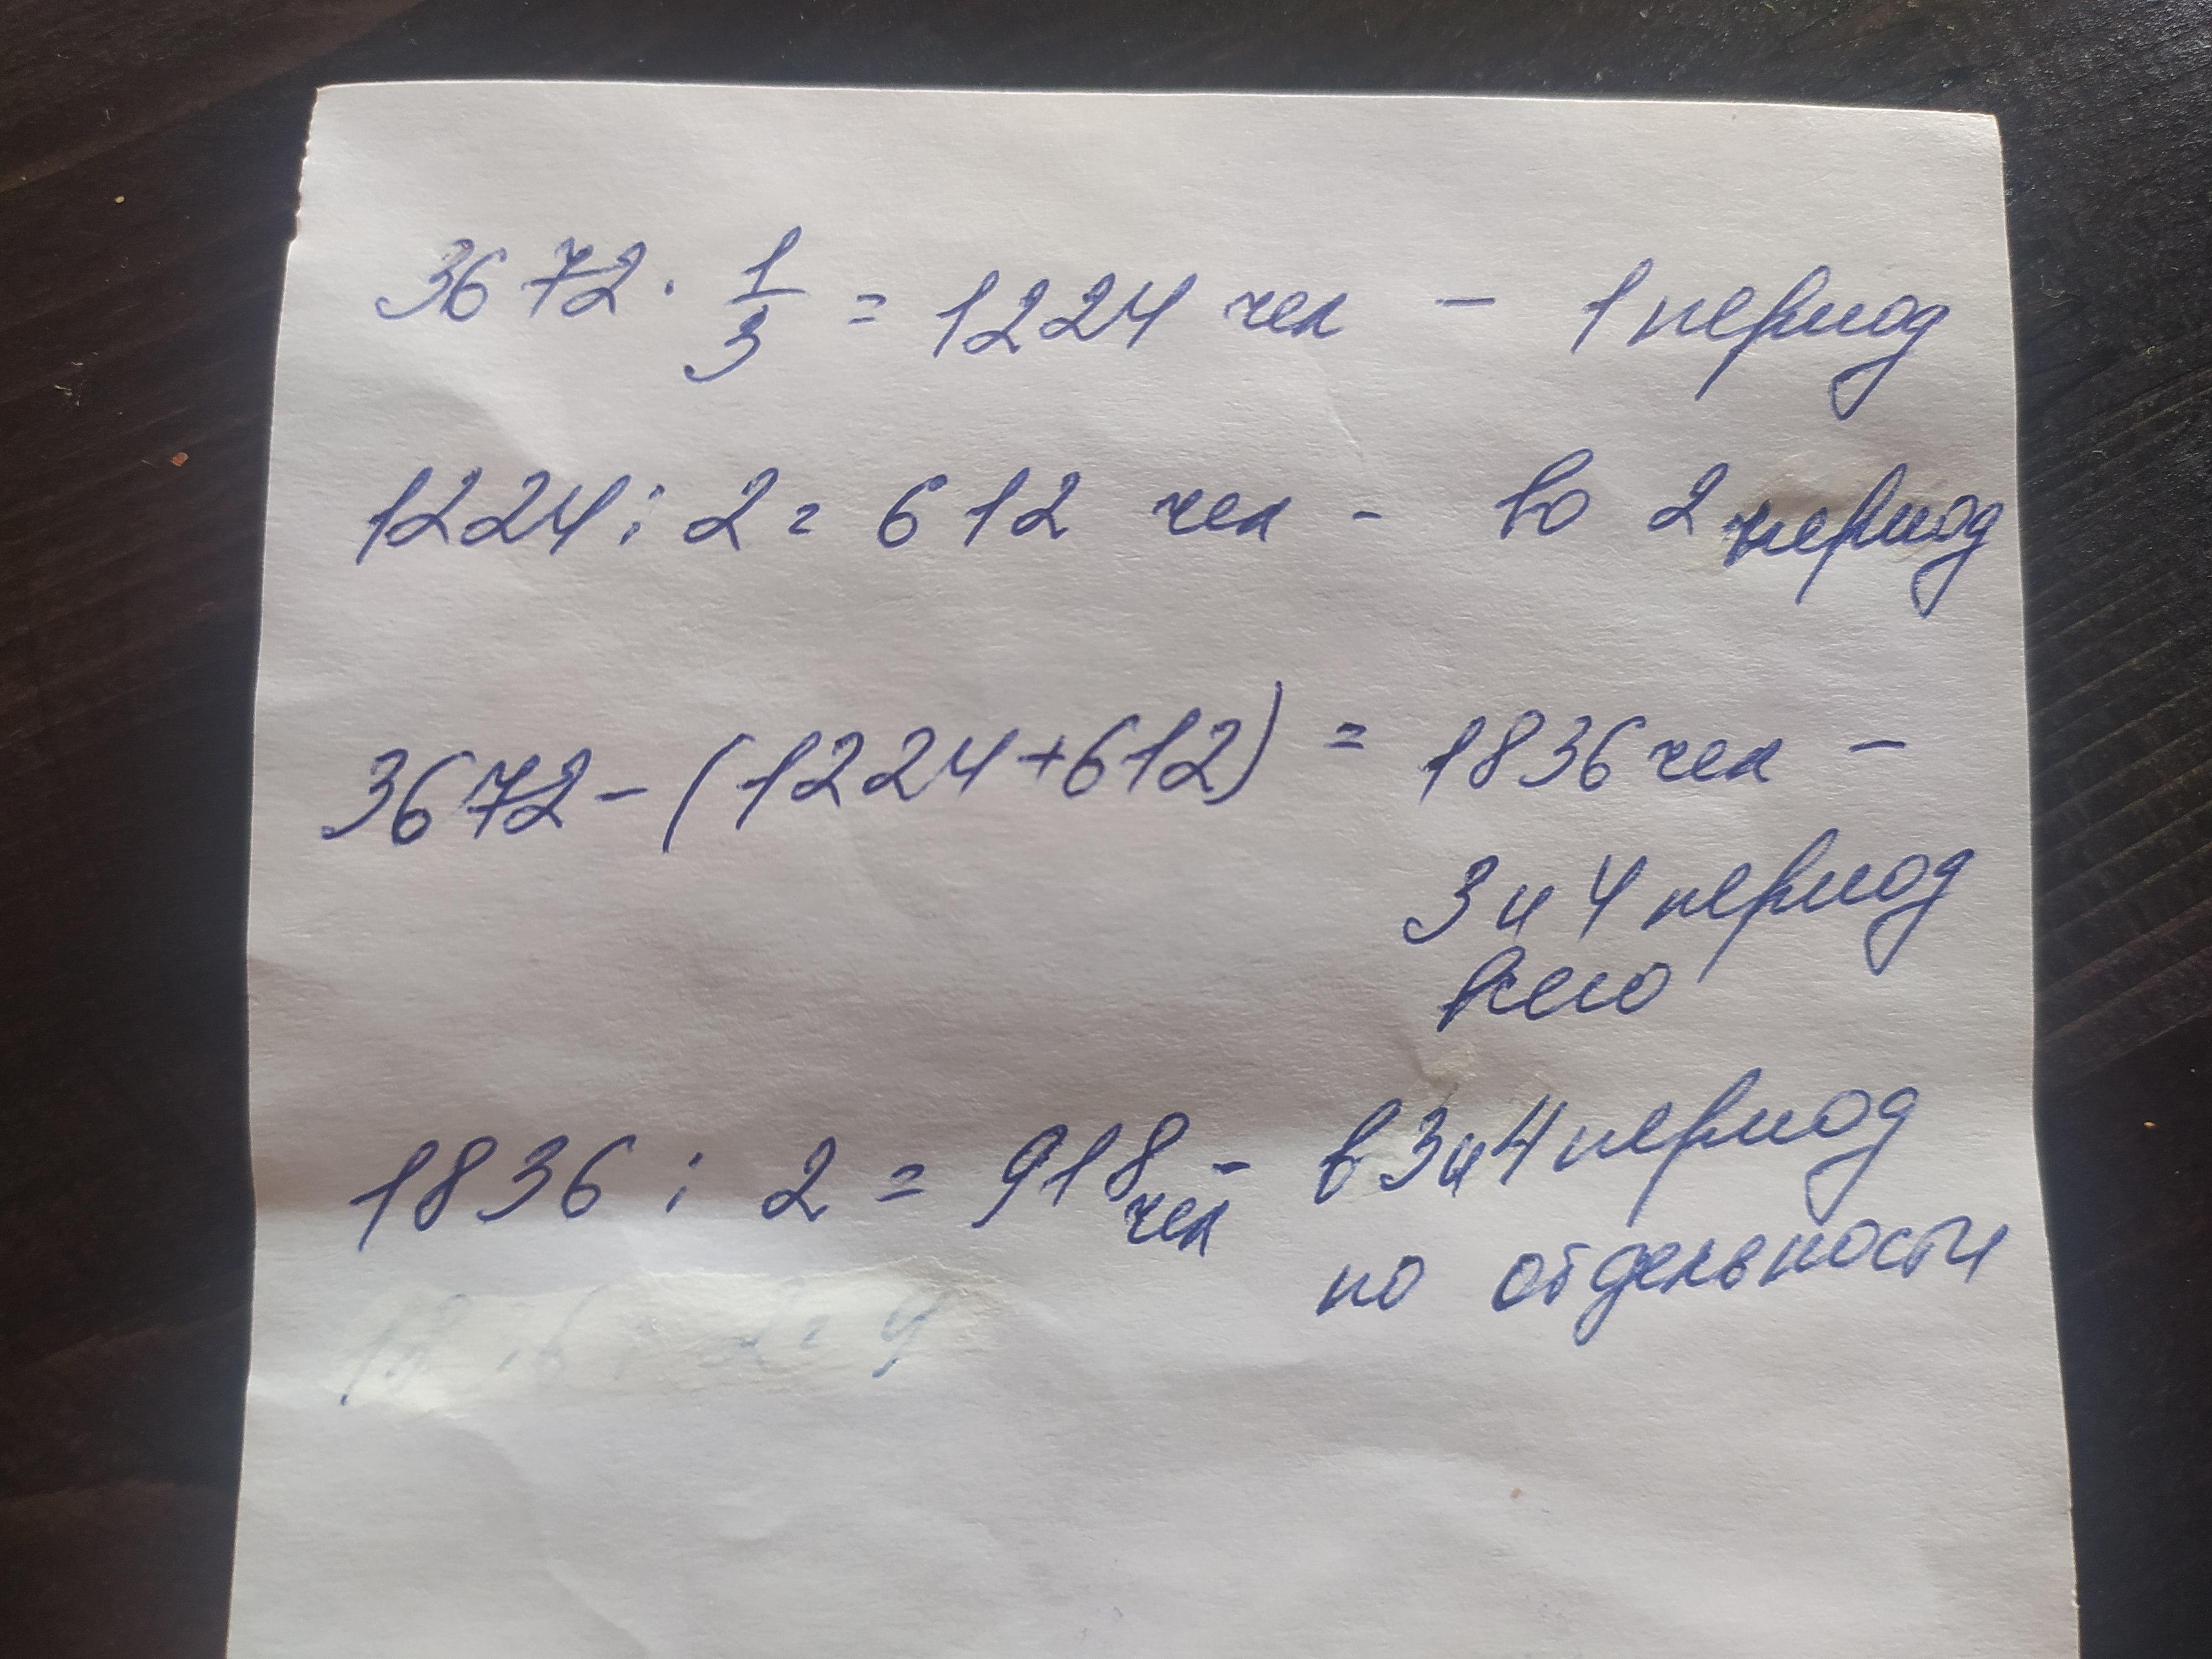 3672 · 1/3 = 1224 чел - 1 период
1224 : 2 = 612 чел - во 2 период
3672 - (1224 + 612) = 1836 чел -
3 и 4 период
всего
1836 : 2 = 918 чел - в 3 и 4 период
по отдельности